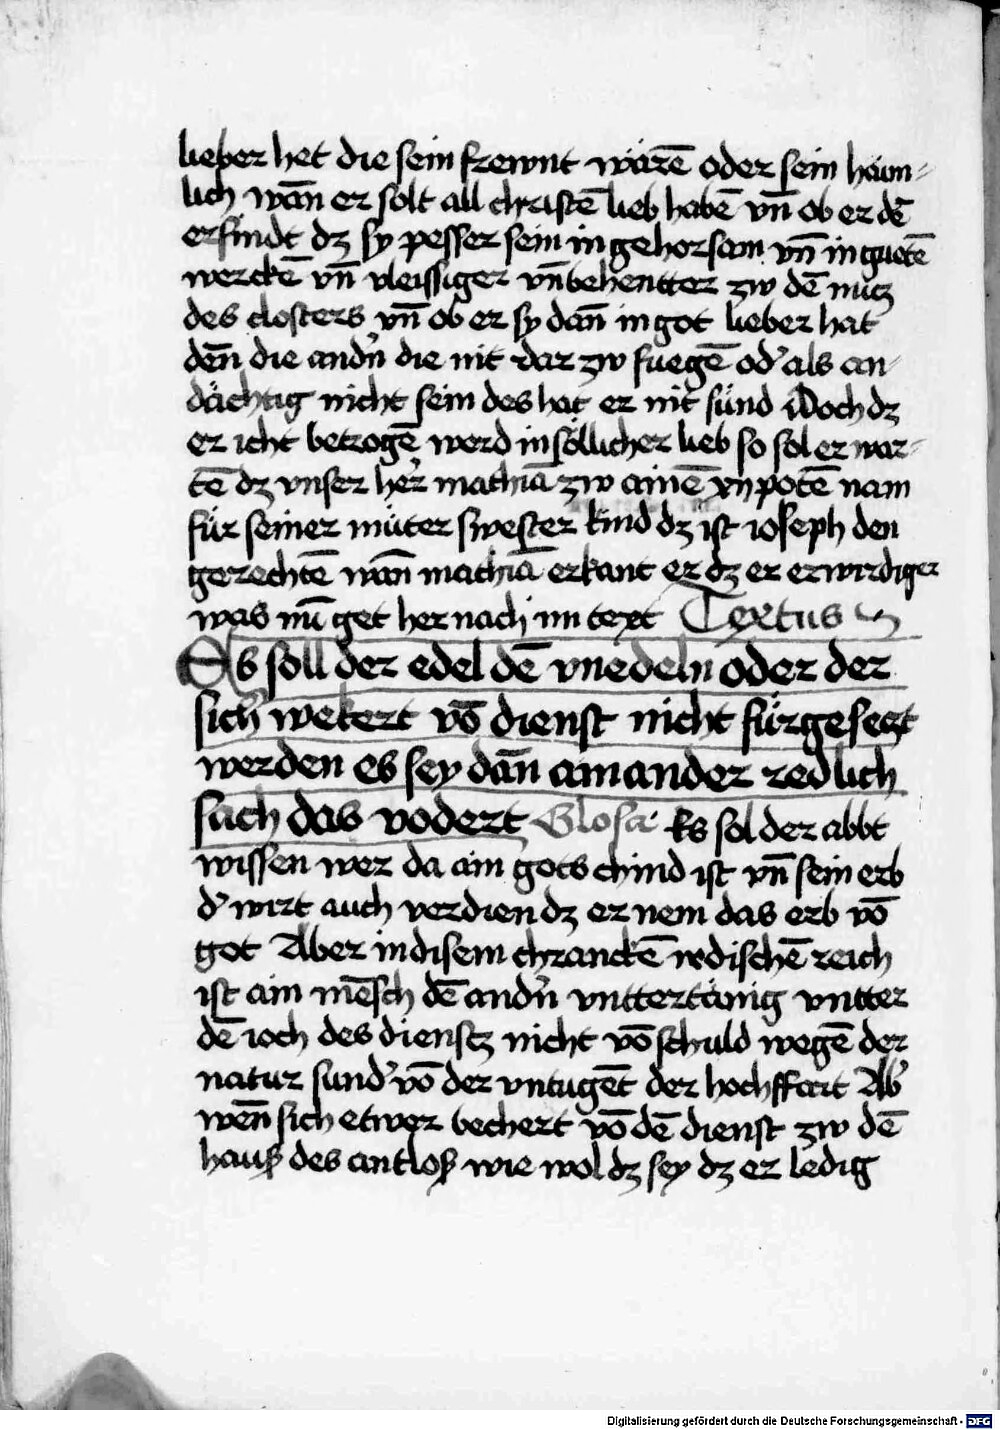 lieber het die sein frewnt wärē oder sein häim⸗
lich wān er solt all christē lieb habē vn̄ ob er dē
erfindt dz sy pesser sein in gehorsam vn̄ in guetē
werckē vn̄ vleissiger vn̄ behentter zw dē nucz
des closters vn̄ ob er sy dan̄ in got lieber hat
den̄ die andn̄ die nit dar zw fuegē od' als an⸗
dächtig nicht sein des hat er nit sünd Doch dz
er icht betrogē werd in söllicher lieb so sol er war⸗
tē dz vnser her' mathiā zw ainē xij potē nam
für seiner müter swester kind dz ist ioseph den
gerechtē wān mathiā erkant er dz er erwirdiger
was nū get her nach im text Textus
Es soll der edel dē vnedeln oder der
sich wekert vō dienst nicht fürgeseczt
werden es sey dān ain ander redlich
sach das vodert Glosa Es sol der abbt
wissen wer da ain gots chind ist vn̄ sein erb
d' wirt auch verdien dz er nem das erb vō
got Aber in disem chranckē irdischē reich
ist ain mēsch dē andn̄ vnttertänig vntter
dē ioch des dienstz nicht vō schuld wegē der
natur sund' vō der vntugēt der hochffart Ab'
wen̄ sich etwer bechert vō dē dienst zw dē
hauß des antloß wie wol dz sey dz er ledig
Digitalisierung gefördert durch die Deutsche Forschungsgemeinschaft - DFG